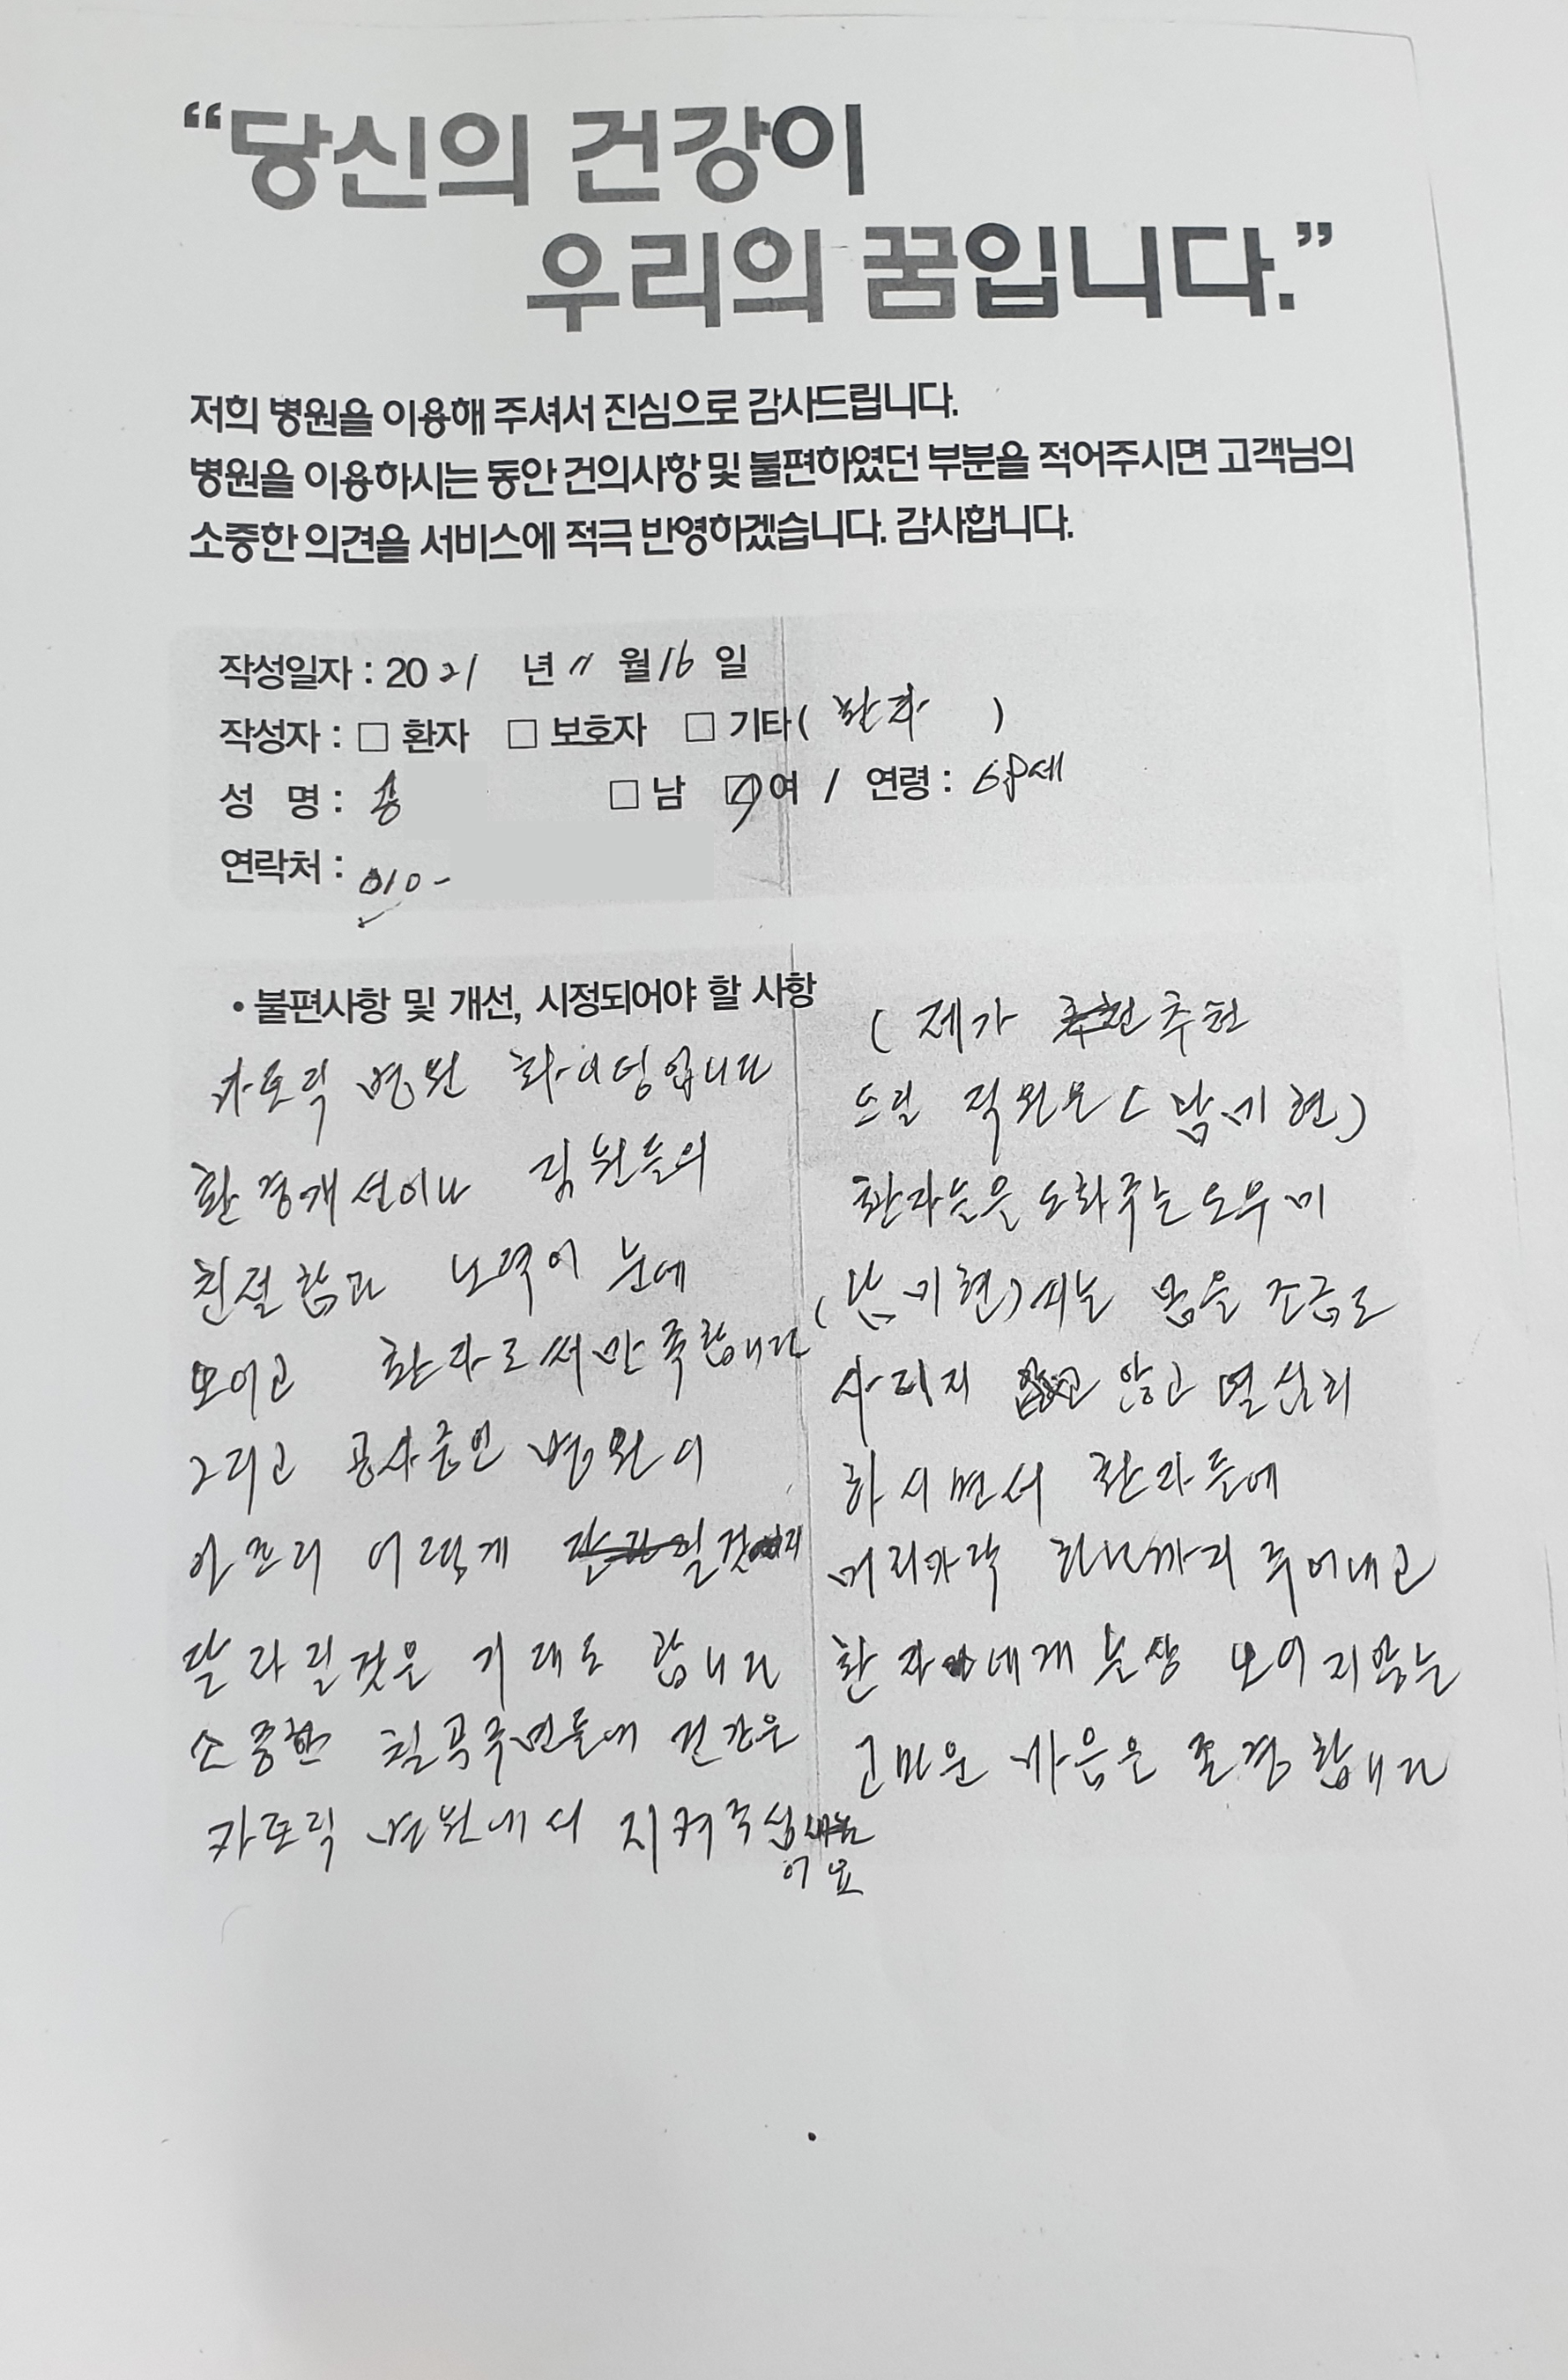 “당신의 건강이
우리의 꿈입니다.”
저희 병원을 이용해 주셔서 진심으로 감사드립니다.
병원을 이용하시는 동안 건의사항 및 불편하였던 부분을 적어주시면 고객님의
소중한 의견을 서비스에 적극 반영하겠습니다. 감사합니다.
작성일자 : 2021 년 11 월 16 일
작성자 : □ 환자 □ 보호자 □ 기타( 환자 )
성 명 : 공 □ 남 ☑ 여 / 연령 : 68세
연락처 : 010-
• 불편사항 및 개선, 시정되어야 할 사항
카토릭 병원 화이팅입니다
환경개선이나 직원들의
친절함과 노력이 눈에
보이고 환자로써 만족합니다
그리고 공사중인 병원이
앞으로 어떻게
달라질것을 기대도 합니다
소중한 칠곡주민들에 건강을
카토릭 병원에서 지켜주십
이요
( 제가 추천
드릴 직원은 ( 남기현)
환자들을 도와주는 도우미
(남기현)씨는 몸을 조금도
사리지 않고 열심히
하시면서 환자들에
머리카락 하나까지 주어내고
환자에게 눈쌀 보이지않는
고마운 마음을 존경합니다